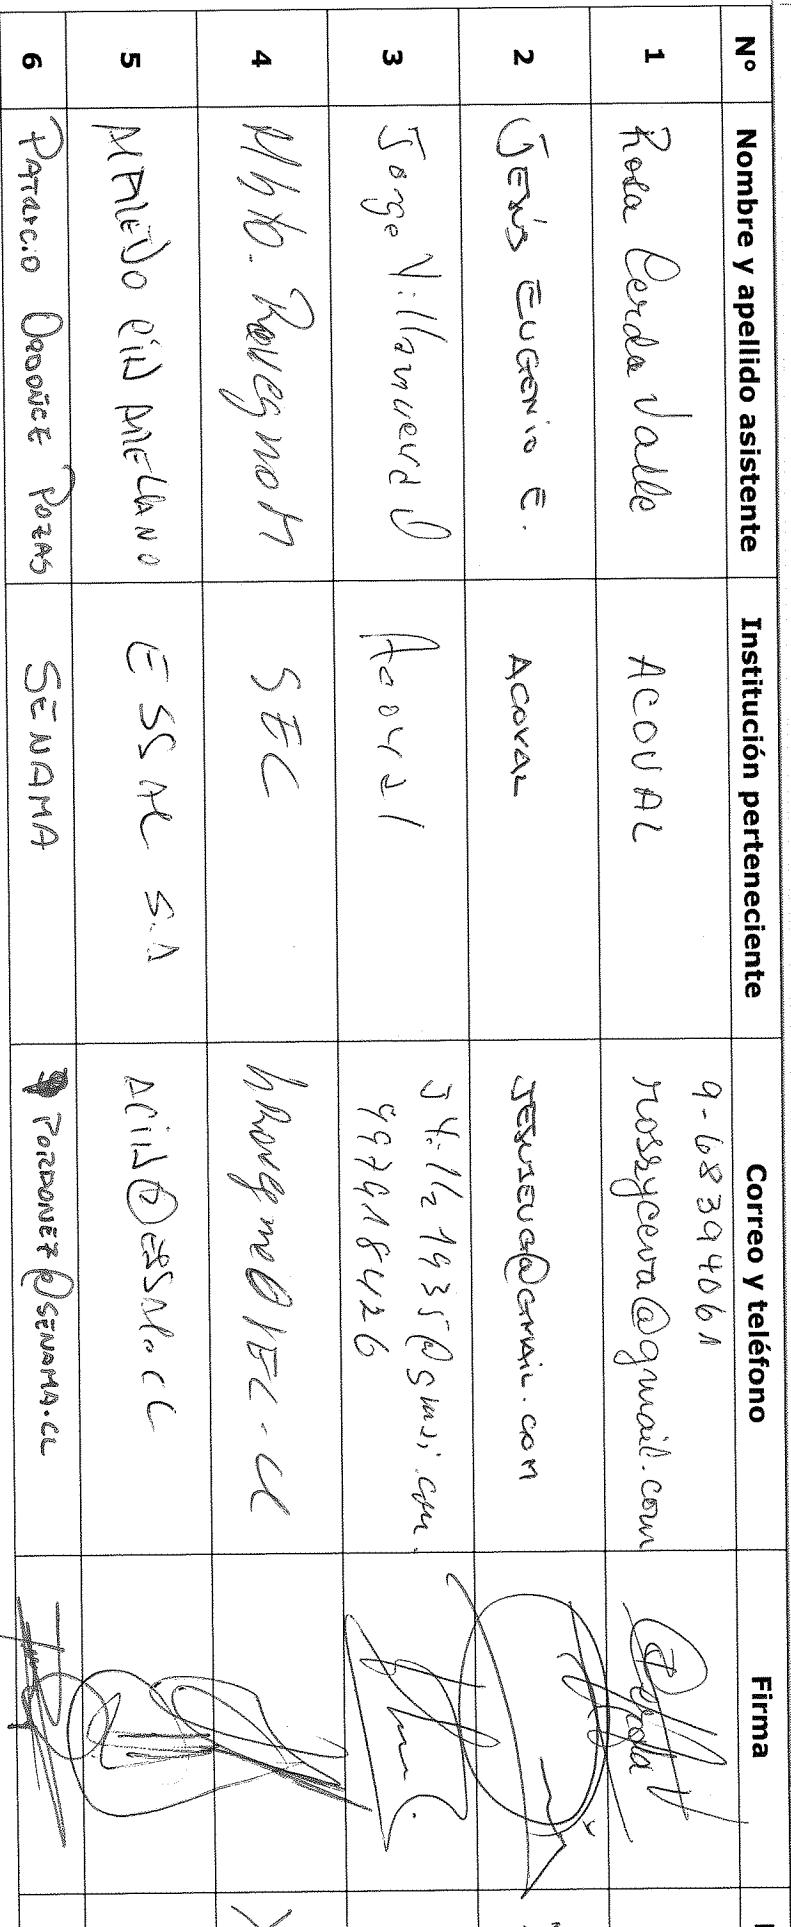 Nº Nombre y apellido asistente Institución perteneciente Correo y teléfono Firma
1 Rosa Cerda Valle ACOVAL 9-68394061
rossyceva@gmail.com
2 JESÚS EUGENIO E. ACOVAL JESUSEUG@GMAIL.COM
3 Jorge Villanueva Acoval
997918426
4 SEC
5 ARELLANO ESSAL S.A ACID@ESSAL.CL
6 PATRICIO ORDOÑEZ POZAS SENAMA PORDONEZ@SENAMA.CL